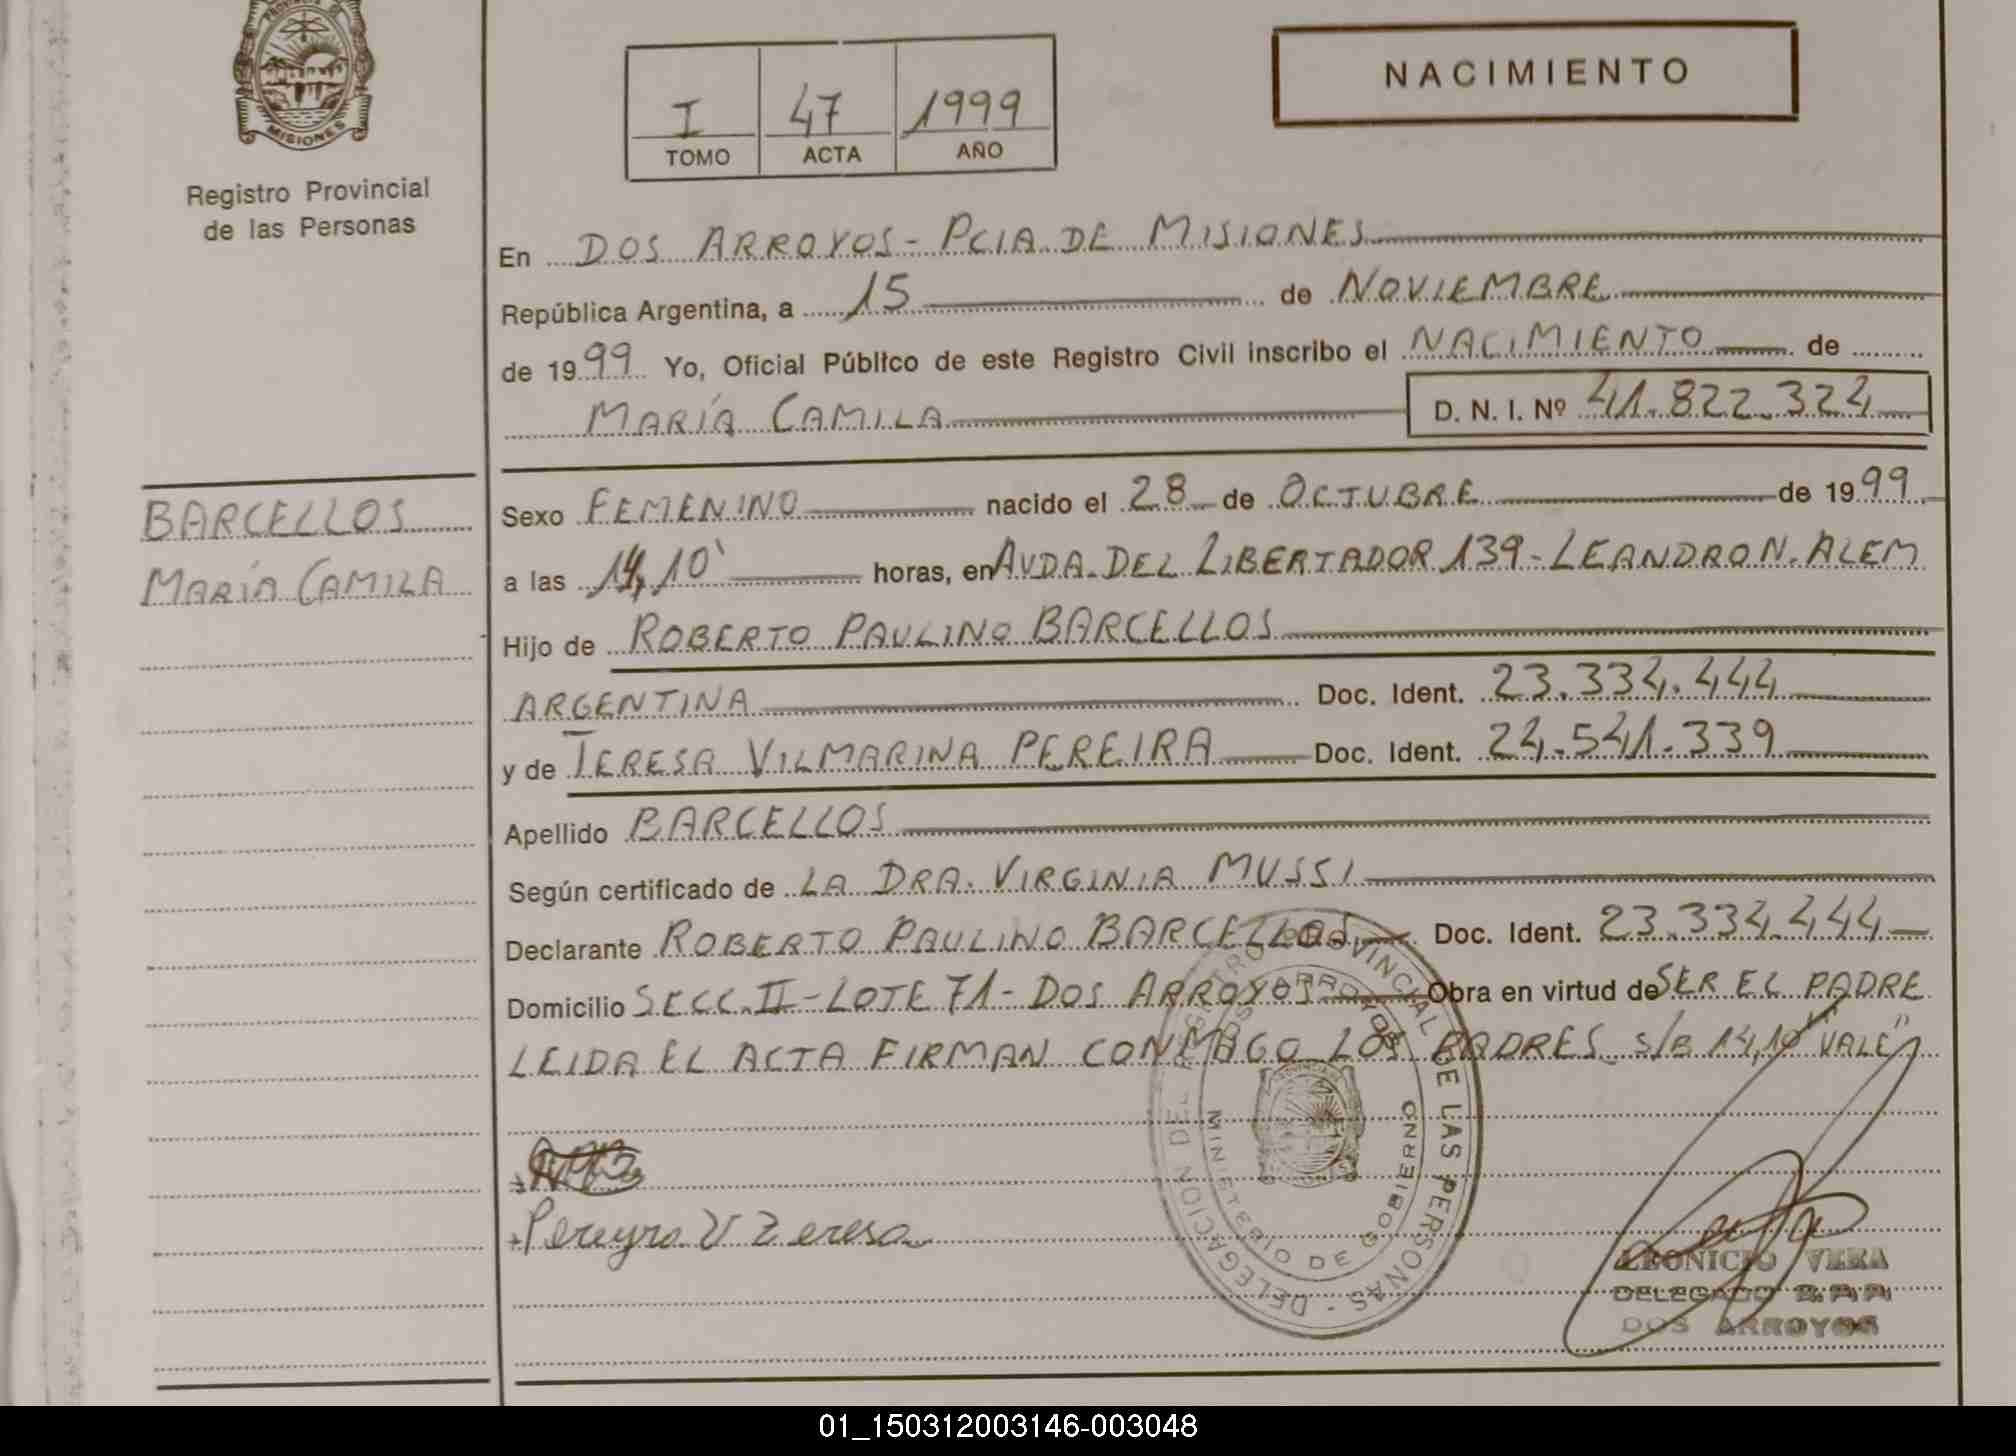 PROVINCIA DE
MISIONES
Registro Provincial
de las Personas
I 47 1999
TOMO ACTA AÑO
NACIMIENTO
En DOS ARROYOS - PCIA DE MISIONES
República Argentina, a 15 de NOVIEMBRE
de 1999 Yo, Oficial Público de este Registro Civil inscribo el NACIMIENTO de
MARÍA CAMILA D. N. I. Nº 41.822.324
BARCELLOS
MARÍA CAMILA
Sexo FEMENINO nacido el 28 de OCTUBRE de 1999
a las 14,10' horas, en AVDA. DEL LIBERTADOR 139 - LEANDRO N. ALEM
Hijo de ROBERTO PAULINO BARCELLOS
ARGENTINA Doc. Ident. 23.334.444
y de TERESA VILMARINA PEREIRA Doc. Ident. 24.541.339
Apellido BARCELLOS
Según certificado de LA DRA. VIRGINIA MUSSI
Declarante ROBERTO PAULINO BARCELLOS Doc. Ident. 23.334.444
Domicilio SECC. II - LOTE 71 - DOS ARROYOS Obra en virtud de SER EL PADRE
LEIDA EL ACTA FIRMAN CONMIGO LOS PADRES S/B 14,10 "VALE"
Pereyra V Teresa
DELEGACION DEL REGISTRO PROVINCIAL DE LAS PERSONAS
DOS ARROYOS
MINISTERIO DE GOBIERNO
LEONICIO VERA
DELEGADO R.P.P.
DOS ARROYOS
01_150312003146-003048